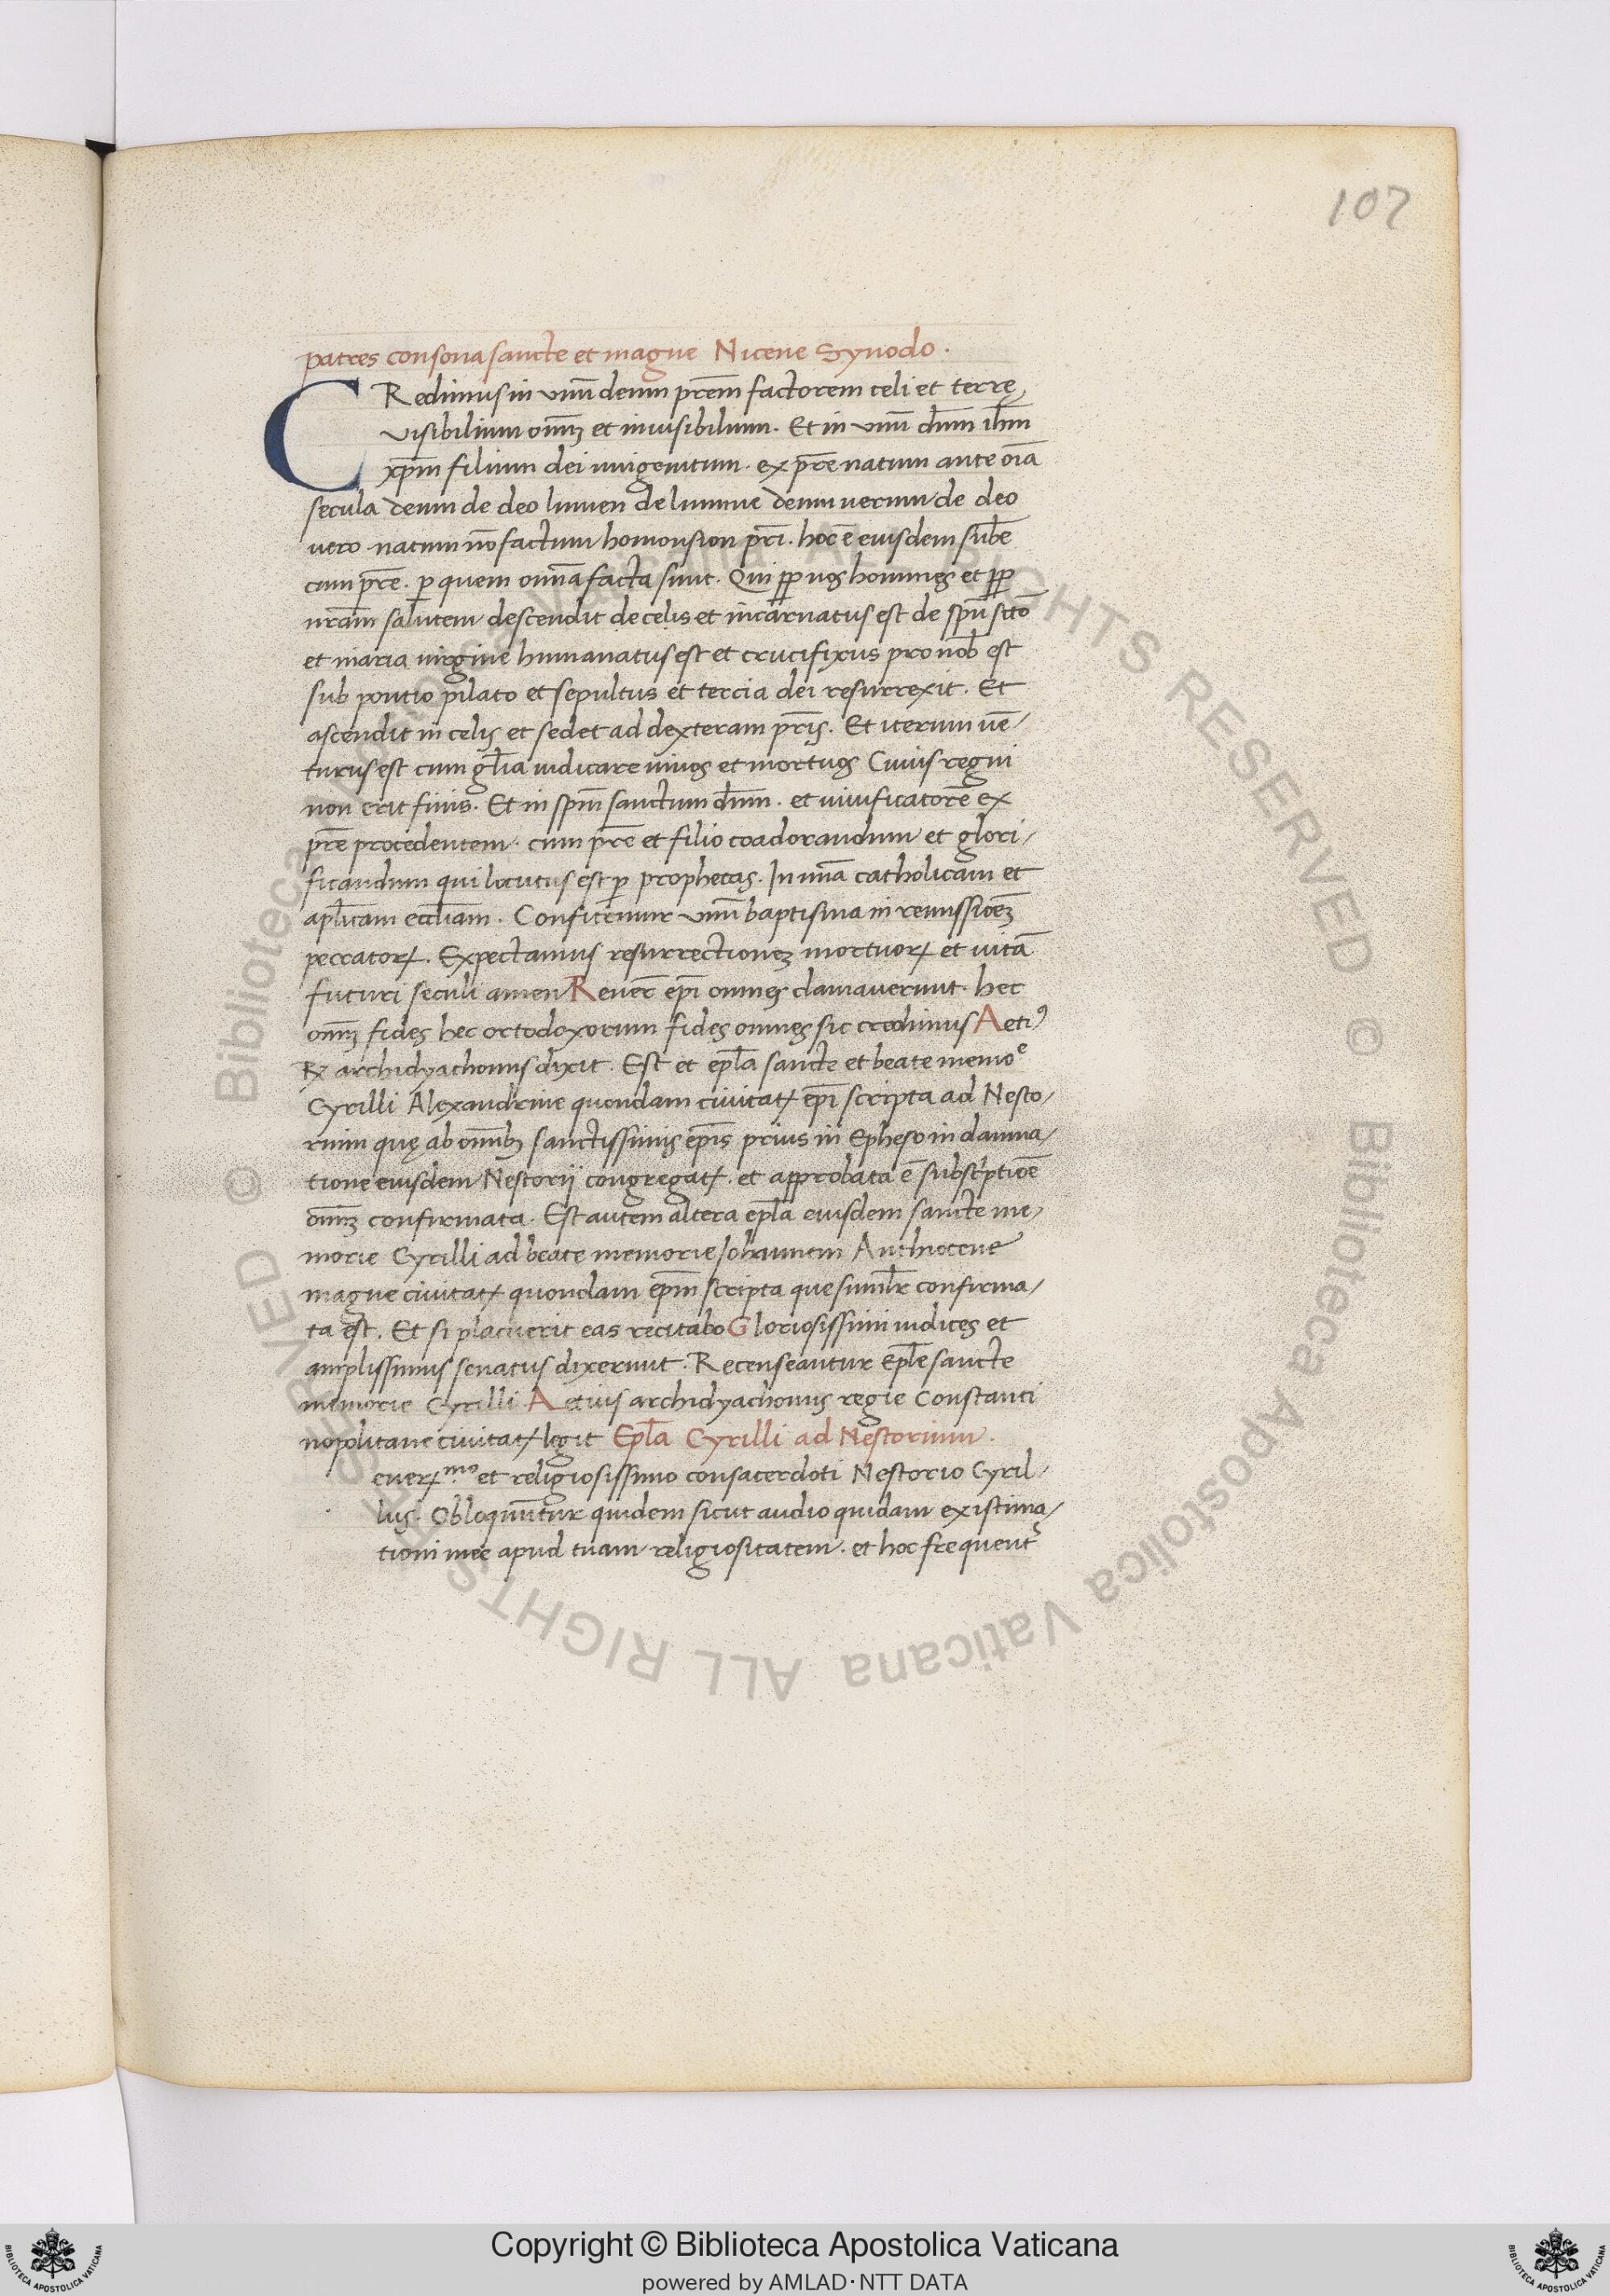 107
patres consona sancte et magne Nicene Synodo.
CRedimus in vnũ deum pr̃em factorem celi et terrę,
visibilium om̃ꝫ et inuisibilium. Et in vnũ dñm ihm̃
xp̃m filium dei unigenitum. ex pr̃e natum ante oĩa
secula deum de deo lumen de lumine deum uerum de deo
uero natum nõ factum homousion pr̃i. hoc ẽ eiusdem sub̃e
cum pr̃e. ꝑ quem omnĩa facta sunt. Qui ꝓꝑ nos homines et ꝓꝑ
nr̃am salutem descendit de celis et incarnatus est de spũ sctõ
et maria uirgine humanatus est et crucifixus pro nob̃ est
sub pontio pilato et sepultus et tercia dei resurrexit. Et
ascendit in celis et sedet ad dexteram pr̃is. Et iterum uẽ/
turus est cum gl̃ia iudicare uiuos et mortuos Cuius regni
non erit finis. Et in sp̃m sanctum dñm. et uiuificatorẽ ex
pr̃e procedentem. cum pr̃e et filio coadorandum et glori/
ficandum qui locutus est ꝑ prophetas. In unã catholicam et
apl̃icam eccl̃iam. Confitemur vnũ baptisma in remissiõeꝫ
peccatoꝝ. Expectamus resurrectioneꝫ mortuoꝝ et uitã
futuri seculi amen Reuer̃ ep̃i omnes clamauerunt. hec
om̃ꝫ fides hec ortodoxorum fides omnes sic credimus Aetiꝰ
℞ archidyachonus dixit. Est et epl̃a sancte et beate memoᵉ
Cyrilli Alexandrine quondam ciuitatꝭ ep̃i scripta ad Nesto/
rium quę ab om̃ibꝫ sanctissimis ep̃is prius in Epheso in damna/
tione eiusdem Nestorij congregatꝭ. et approbata ẽ subscriptiõe
om̃ꝫ confirmata. Est autem altera epl̃a eiusdem sancte me/
morie Cyrilli ad beate memorie Johannem Anthiocene
magne ciuitatꝭ quondam ep̃m scripta que simil̃r confirma/
ta est. Et si placuerit eas recitabo Gloriosissimi iudices et
amplissimus senatus dixerunt. Recenseantur epl̃e sancte
memorie Cyrilli Aetius archidyachonus regie Constanti
nopolitane ciuitatꝭ legit Epl̃a Cyrilli ad Nestorium.
euerꝭ.ᵐᵒ et religiosissimo consacerdoti Nestorio Cyril/
lus. Obloquũtur quidem sicut audio quidam existima/
tioni mee apud tuam religiositatem. et hoc frequent̃
Copyright © Biblioteca Apostolica Vaticana
powered by AMLAD·NTT DATA